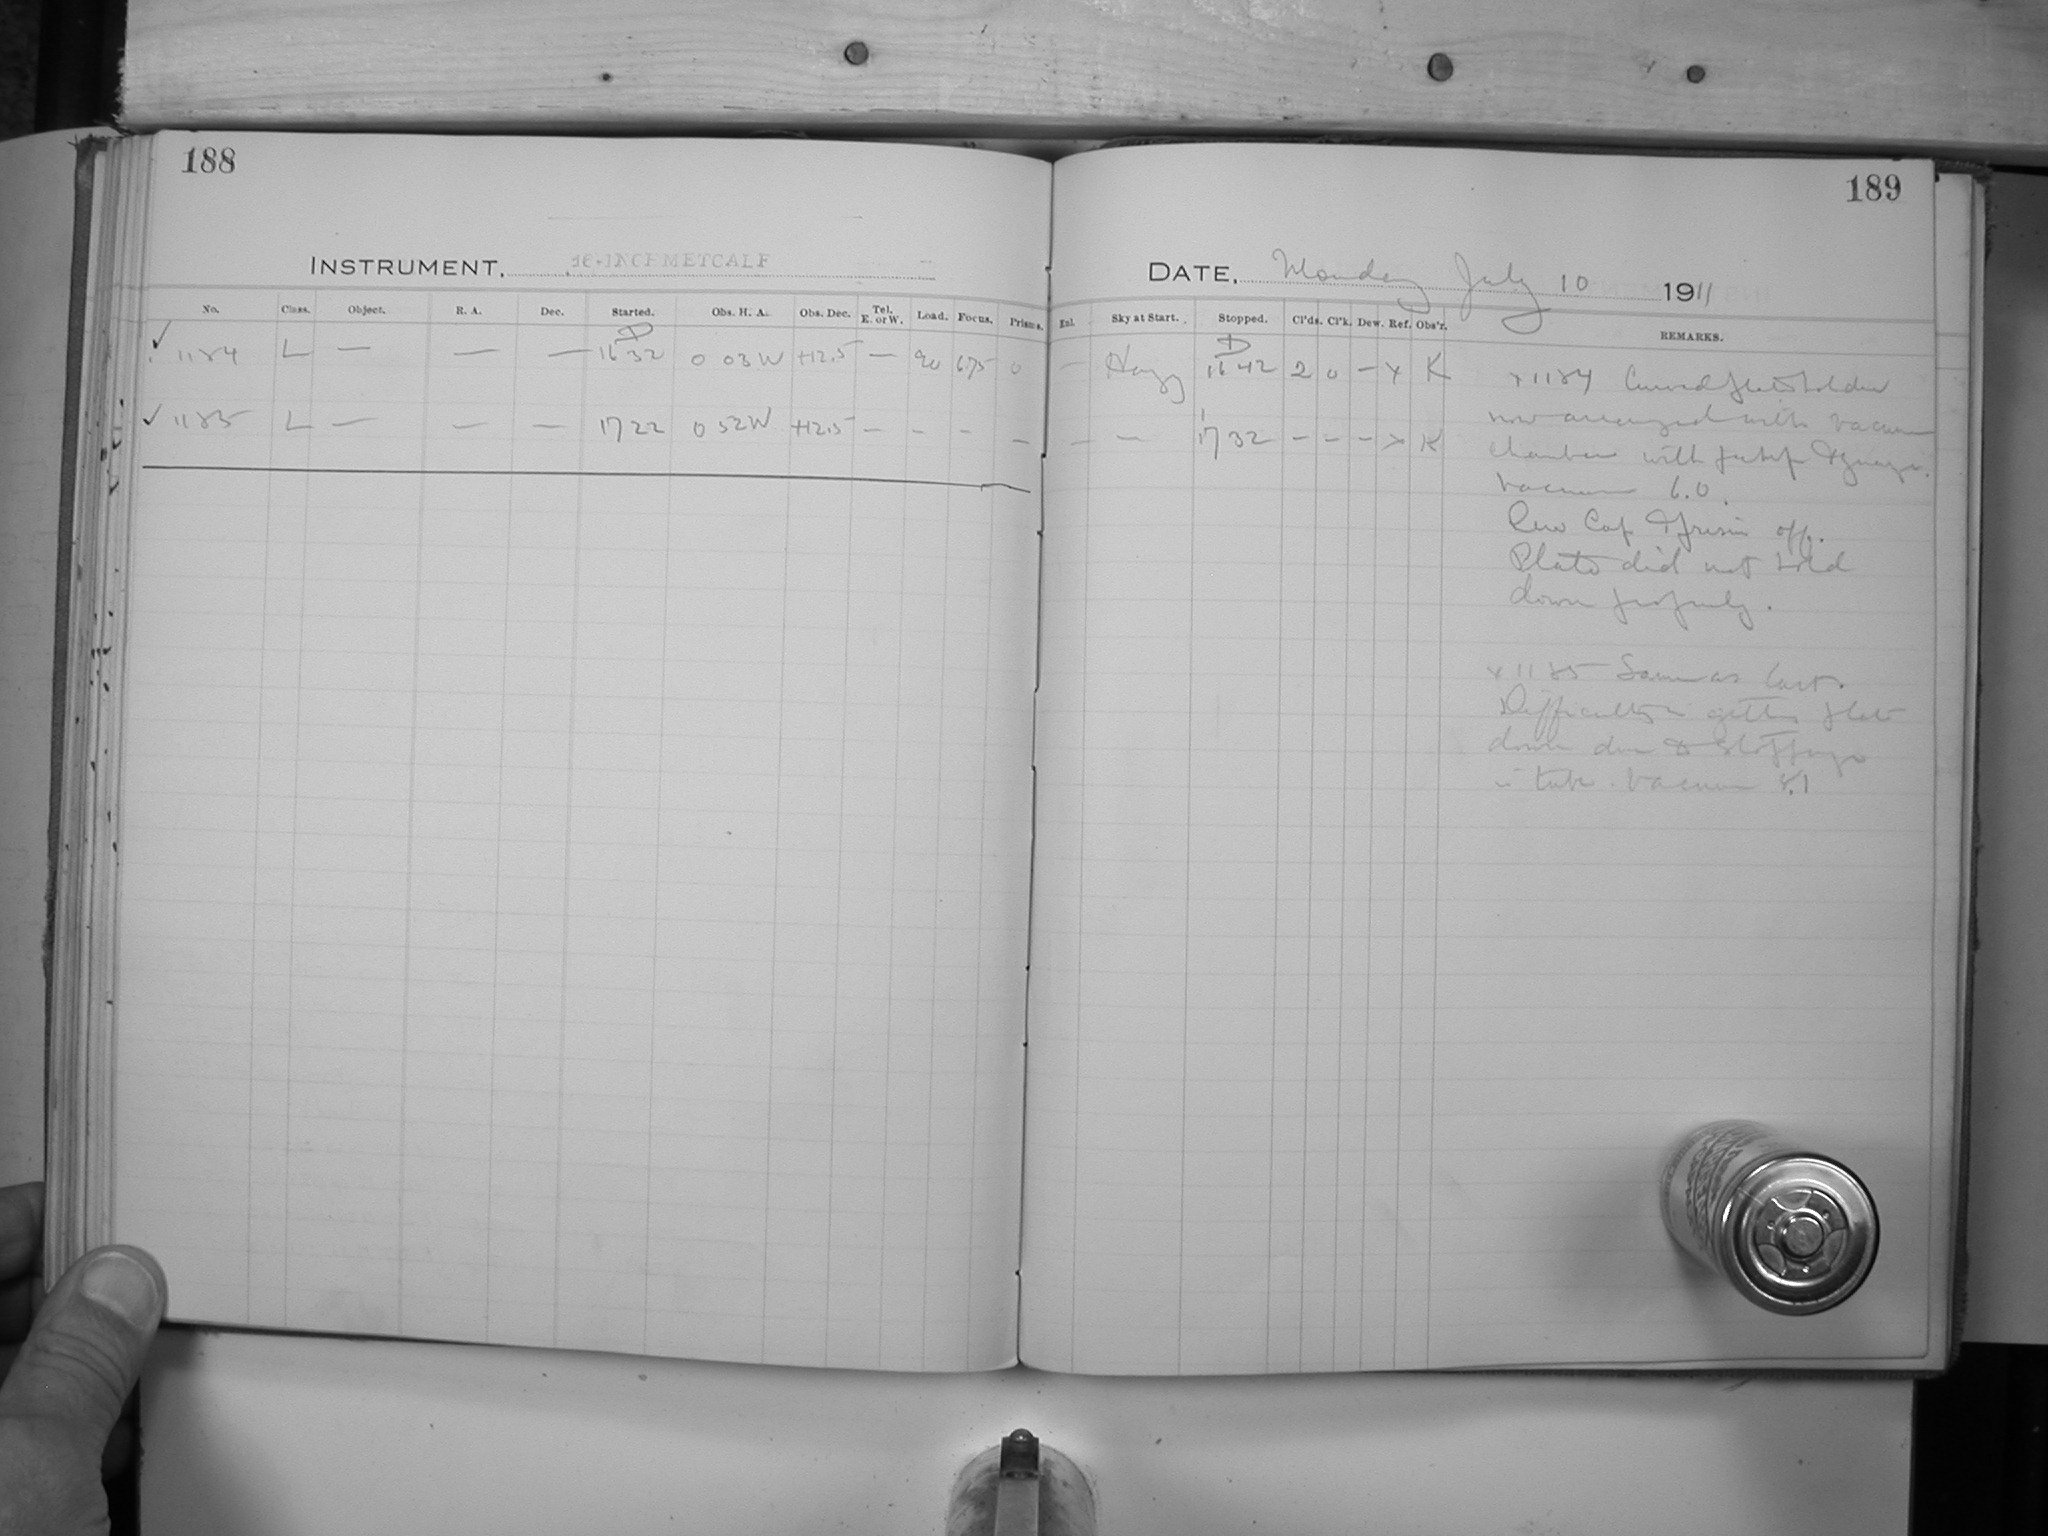 188
INSTRUMENT, 16-INCH METCALF
No. Class. Object. R. A. Dec. Started. Obs. H. A. Obs. Dec. Tel. E. or W. Load. Focus. Prisms.
✓ 1184 L — — — 16 32 0 03 W +12.5 — 90 675 0
✓ 1185 L — — — 17 22 0 52 W +12.5 — - - —
189
DATE, Monday July 10 1911
Exl. Sky at Start. Stopped. Cl'ds. Cl'k. Dew. Ref. Obs'r. REMARKS.
— Hazy 16 42 2 0 — x K
— — 17 32 — — — x K
x 1184 Curved plateholder
now arranged with vacuum
chamber with pump & guage.
Vacuum 6.0.
Cap & prism off.
Plate did not hold
down properly.
x 1185 Same as last.
Difficulty in getting plate
down due to stoppage
in tube. Vacuum 8.1